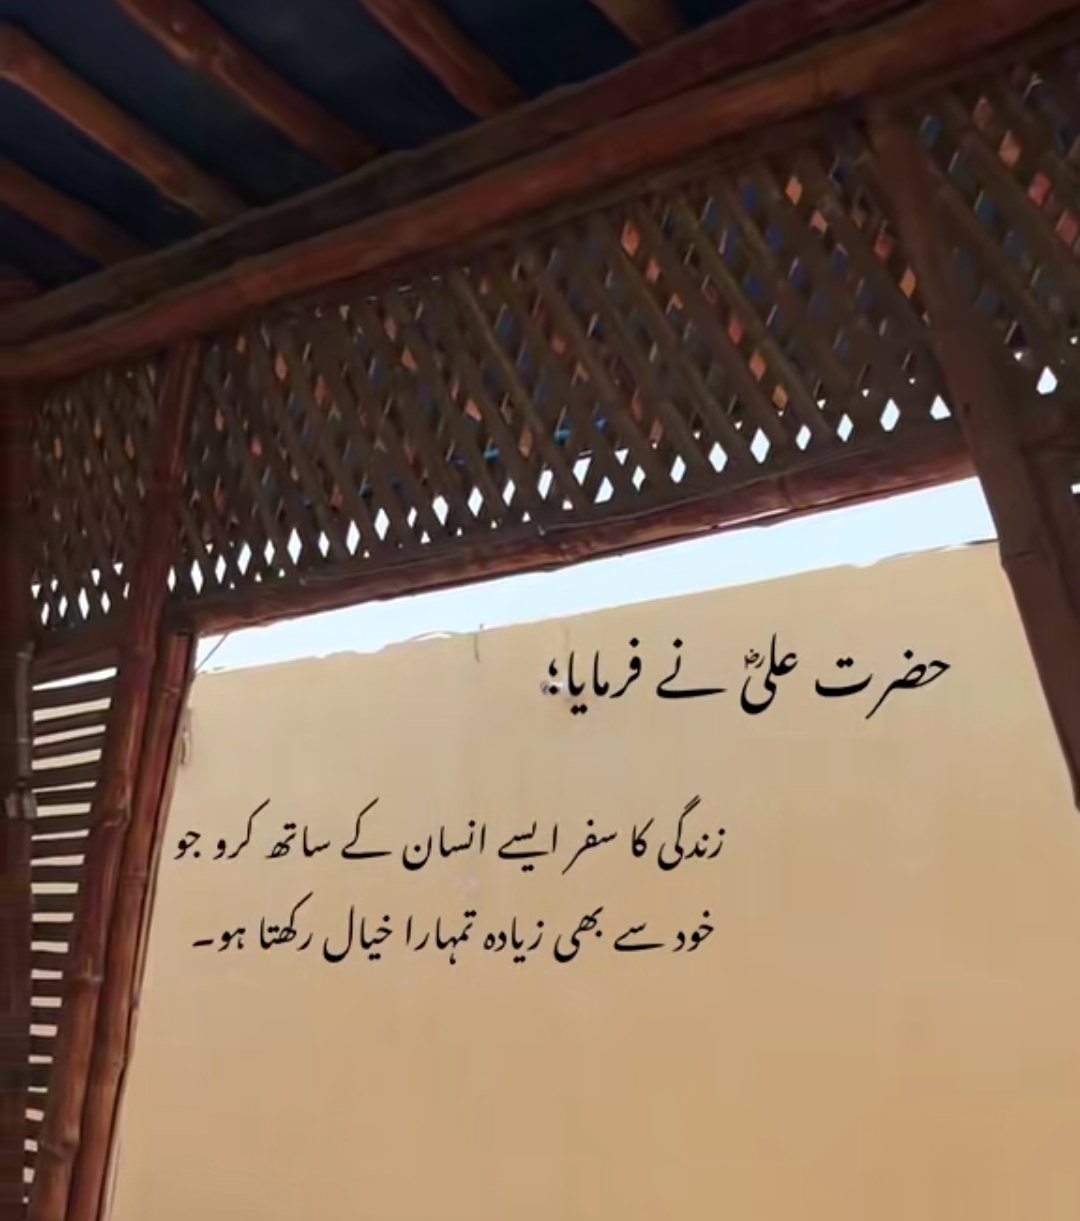 حضرت علیؓ نے فرمایا؛
زندگی کا سفر ایسے انسان کے ساتھ کرو جو
خود سے بھی زیادہ تمہارا خیال رکھتا ہو۔